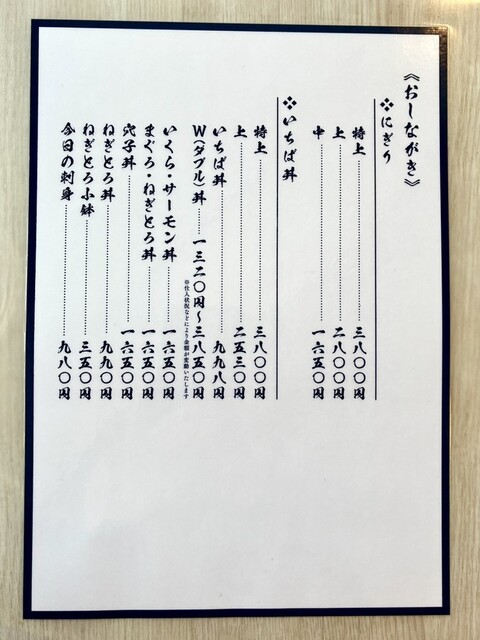 《おしながき》
❖にぎり
特上…三八〇〇円
上…二八〇〇円
中…一六五〇円
❖いちば丼
特上…三八〇〇円
上…二五三〇円
いちば丼…九九八〇円
W(ダブル)丼…一三二〇円～三八五〇円
※仕入状況などにより金額が変動いたします
いくら・サーモン丼…一六五〇円
まぐろ・ねぎとろ丼…一六五〇円
穴子丼…一六五〇円
ねぎとろ丼…九九〇円
ねぎとろ小鉢…三五〇円
今日の刺身…九八〇円